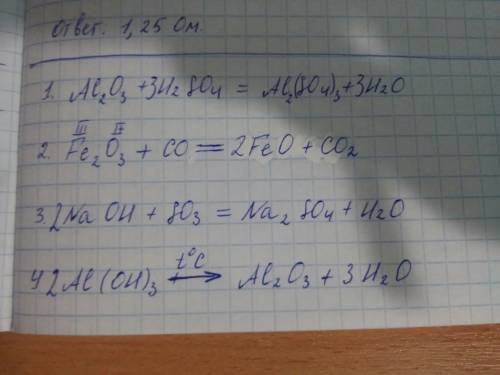 Ответ. 1,25 Ом.
1. Al₂O₃ + 3H₂SO₄ = Al₂(SO₄)₃ + 3H₂O
III II
2. Fe₂O₃ + CO = 2FeO + CO₂
3. 2NaOH + SO₃ = Na₂SO₄ + H₂O
4. 2Al(OH)₃ t°C → Al₂O₃ + 3H₂O